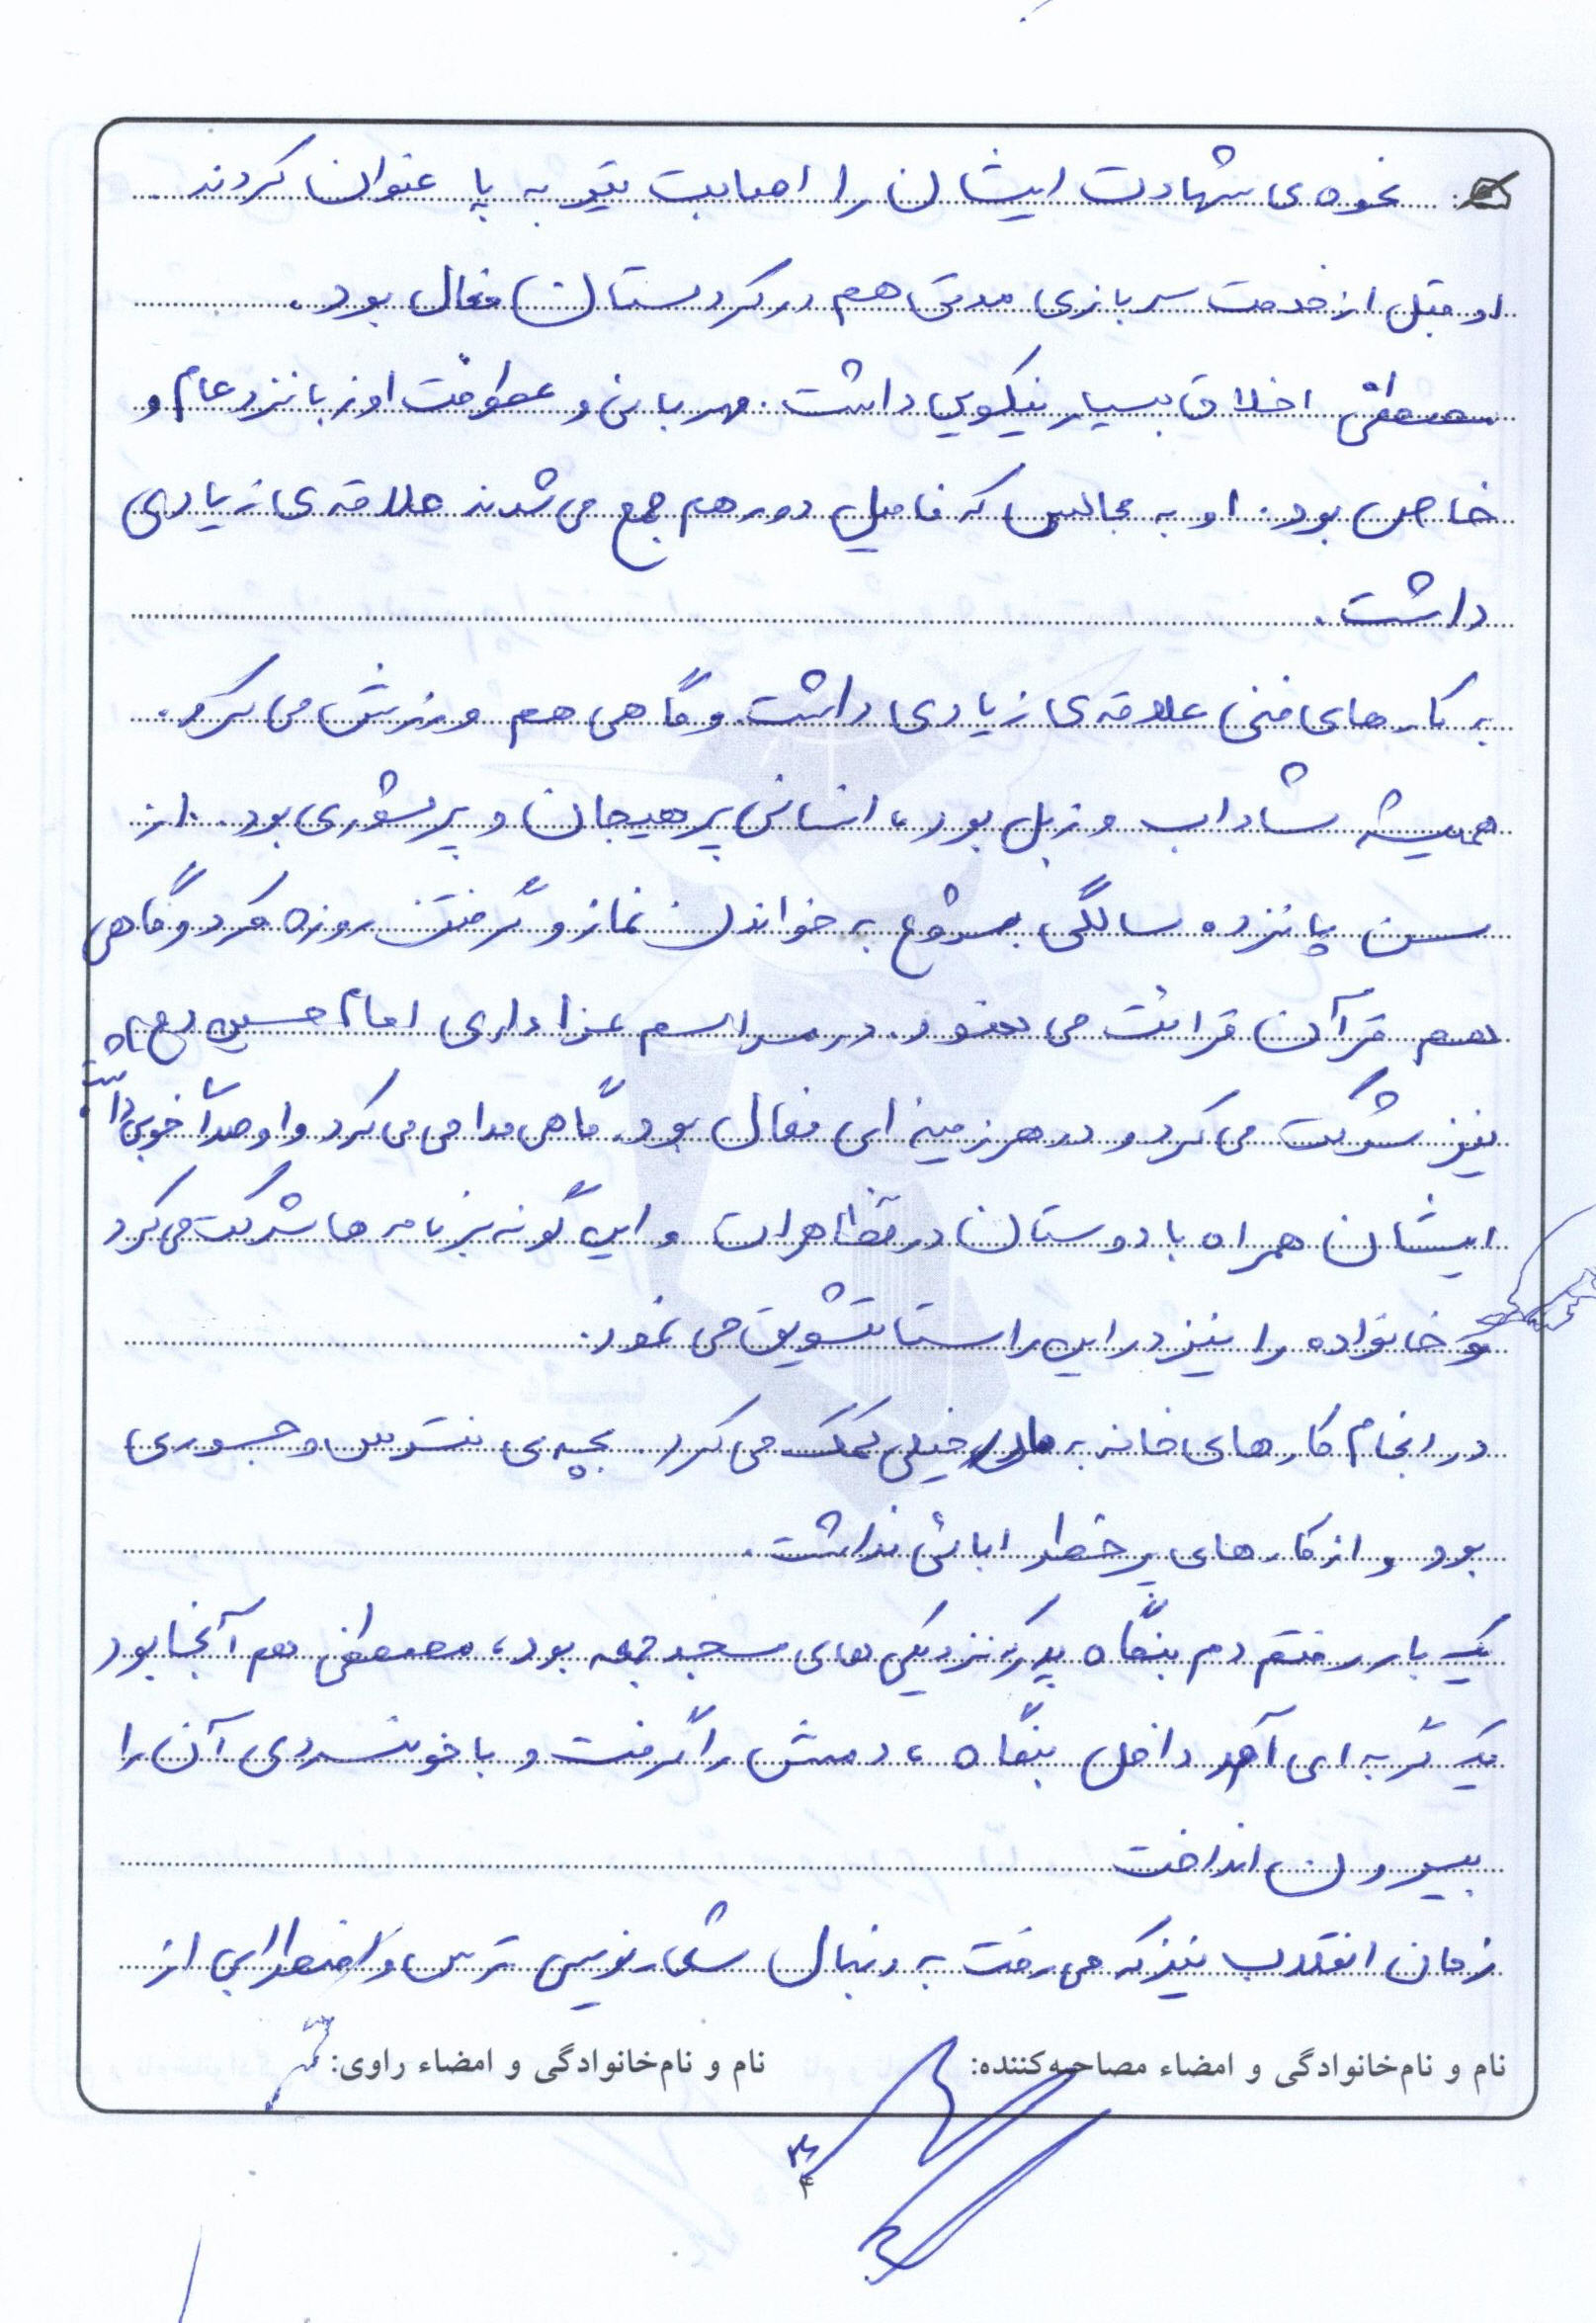 نحوه ی شهادت ایشان را اصابت تیر به پا عنوان کردند
او قبل از خدمت سربازی مدتی هم در کردستان فعال بود.
مصطفی اخلاق بسیار نیکویی داشت. مهربانی و عطوفت او زبانزد عام و
خاص بود. او به مجالس که فامیل دور هم جمع می شدند علاقه ی زیادی
داشت.
به کارهای فنی علاقه ی زیادی داشت و گاهی هم ورزش می کرد.
همیشه شاداب و زبل بود، انسانی پر هیجان و پر شوری بود. از
سن پانزده سالگی شروع به خواندن نماز و گرفتن روزه کرد و گاهی
هم قرآن قرائت می نمود. در مراسم عزاداری امام حسین (ع)
نیز شرکت می کرد و در هر زمینه ای فعال بود. گاهی مداحی می کرد و او صدا خوبی داشت.
ایشان همراه با دوستان در تظاهرات و این گونه برنامه ها شرکت می کرد
و خانواده را نیز در این راستا تشویق می نمود.
در انجام کارهای خانه به مادر خیلی کمک می کرد. بچه ی نترس و جسوری
بود و از کارهای پر خطر ابائی نداشت.
یک بار رفتم دم بنگاه پدر که نزدیکی های مسجد جمعه بود، مصطفی هم آنجا بود
یک گربه ای آمد داخل بنگاه، دمش را گرفت و با خونسردی آن را
بیرون انداخت
زمان انقلاب نیز که می رفت به دنبال شعارنویسی ترس و اضطرابی از
نام و نام‌خانوادگی و امضاء مصاحبه‌کننده: نام و نام‌خانوادگی و امضاء راوی:
۴